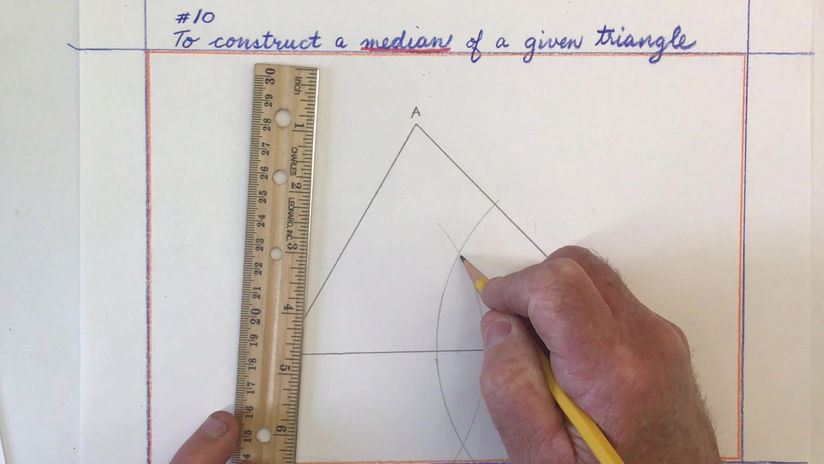 #10
To construct a median of a given triangle
A
30 29 28 27 26 25 24 23 22 21 20 19 18 17 16 15
Inch 1 2 3 4 5 6
CHARLES LEONARD, INC.